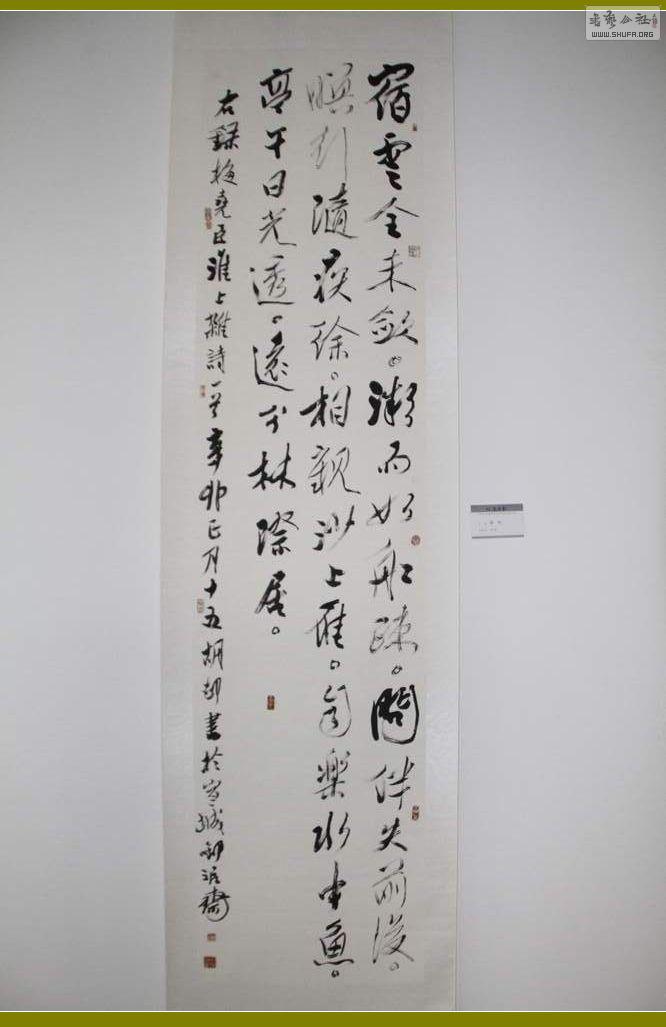 書藝公社
WWW.SHUFA.ORG
宿雲全未歛。漸而如船疎。問伴失前後。
暝行隨疾徐。相親沙上雁。自樂水中魚。
亭午日光透。遠分林際居。
右錄梅堯臣淮上雜詩一首辛卯正月十五胡書於宣城齋